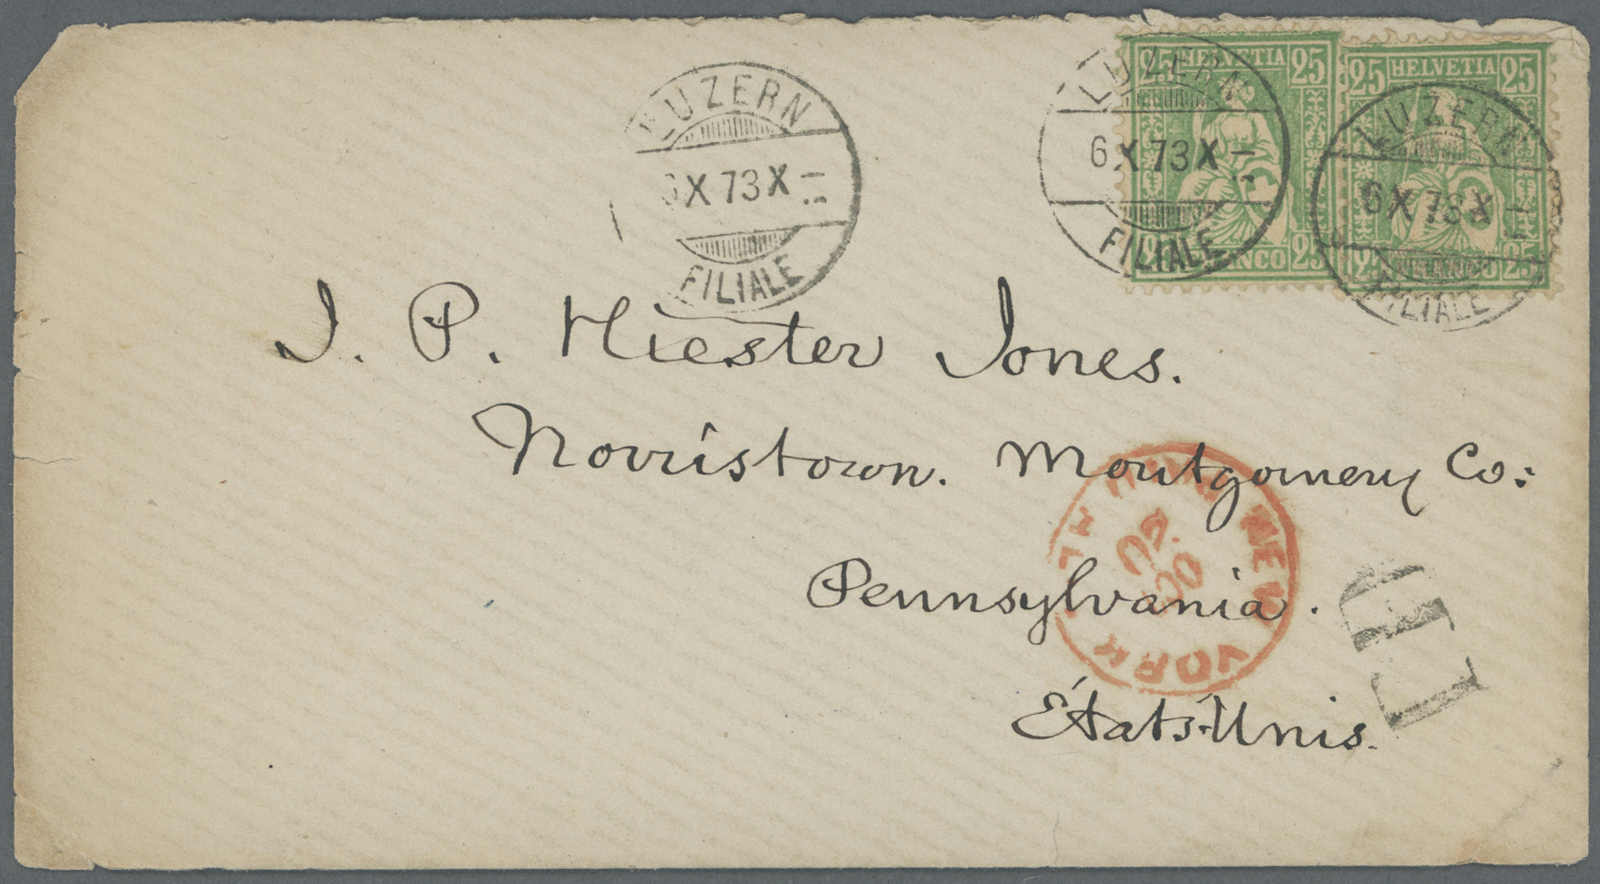 25 HELVETIA 25
25 HELVETIA 25
LUZERN
6 X 73 X
FILIALE
LUZERN
6 X 73 X
FILIALE
LUZERN
6 X 73 X
FILIALE
25
25
J. P. Hiester Jones.
Norristown. Montgomery Co:
Pennsylvania.
États-Unis.
NEW YORK
PD